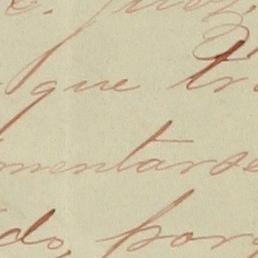 que tr
mentarse
do, porq